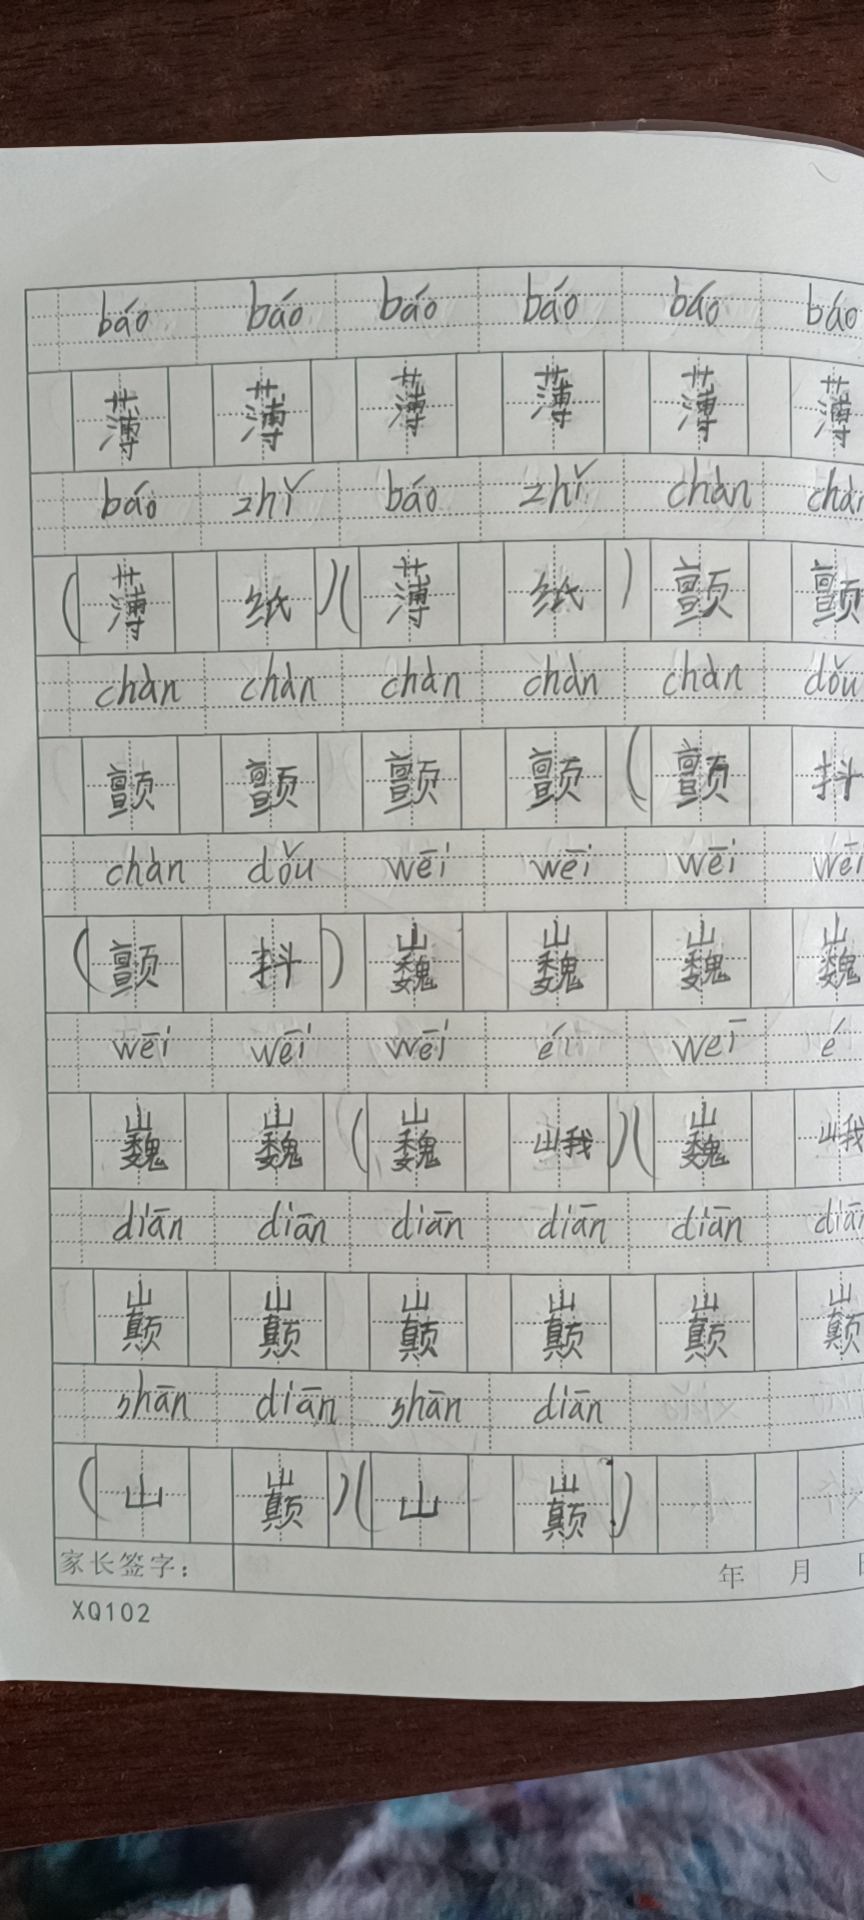 báo báo báo báo báo báo
薄 薄 薄 薄 薄 薄
báo zhǐ báo zhǐ chàn chàn
(薄 纸)(薄 纸) 颤 颤
chàn chàn chàn chàn chàn dǒu
颤 颤 颤 颤 (颤 抖
chàn dǒu wēi wēi wēi wēi
(颤 抖) 巍 巍 巍 巍
wēi wēi wēi é wēi é
巍 巍 (巍 峨)(巍 峨
diān diān diān diān diān diān
巅 巅 巅 巅 巅 巅
shān diān shān diān
(山 巅)(山 巅)
家长签字: 年 月 日
XQ102